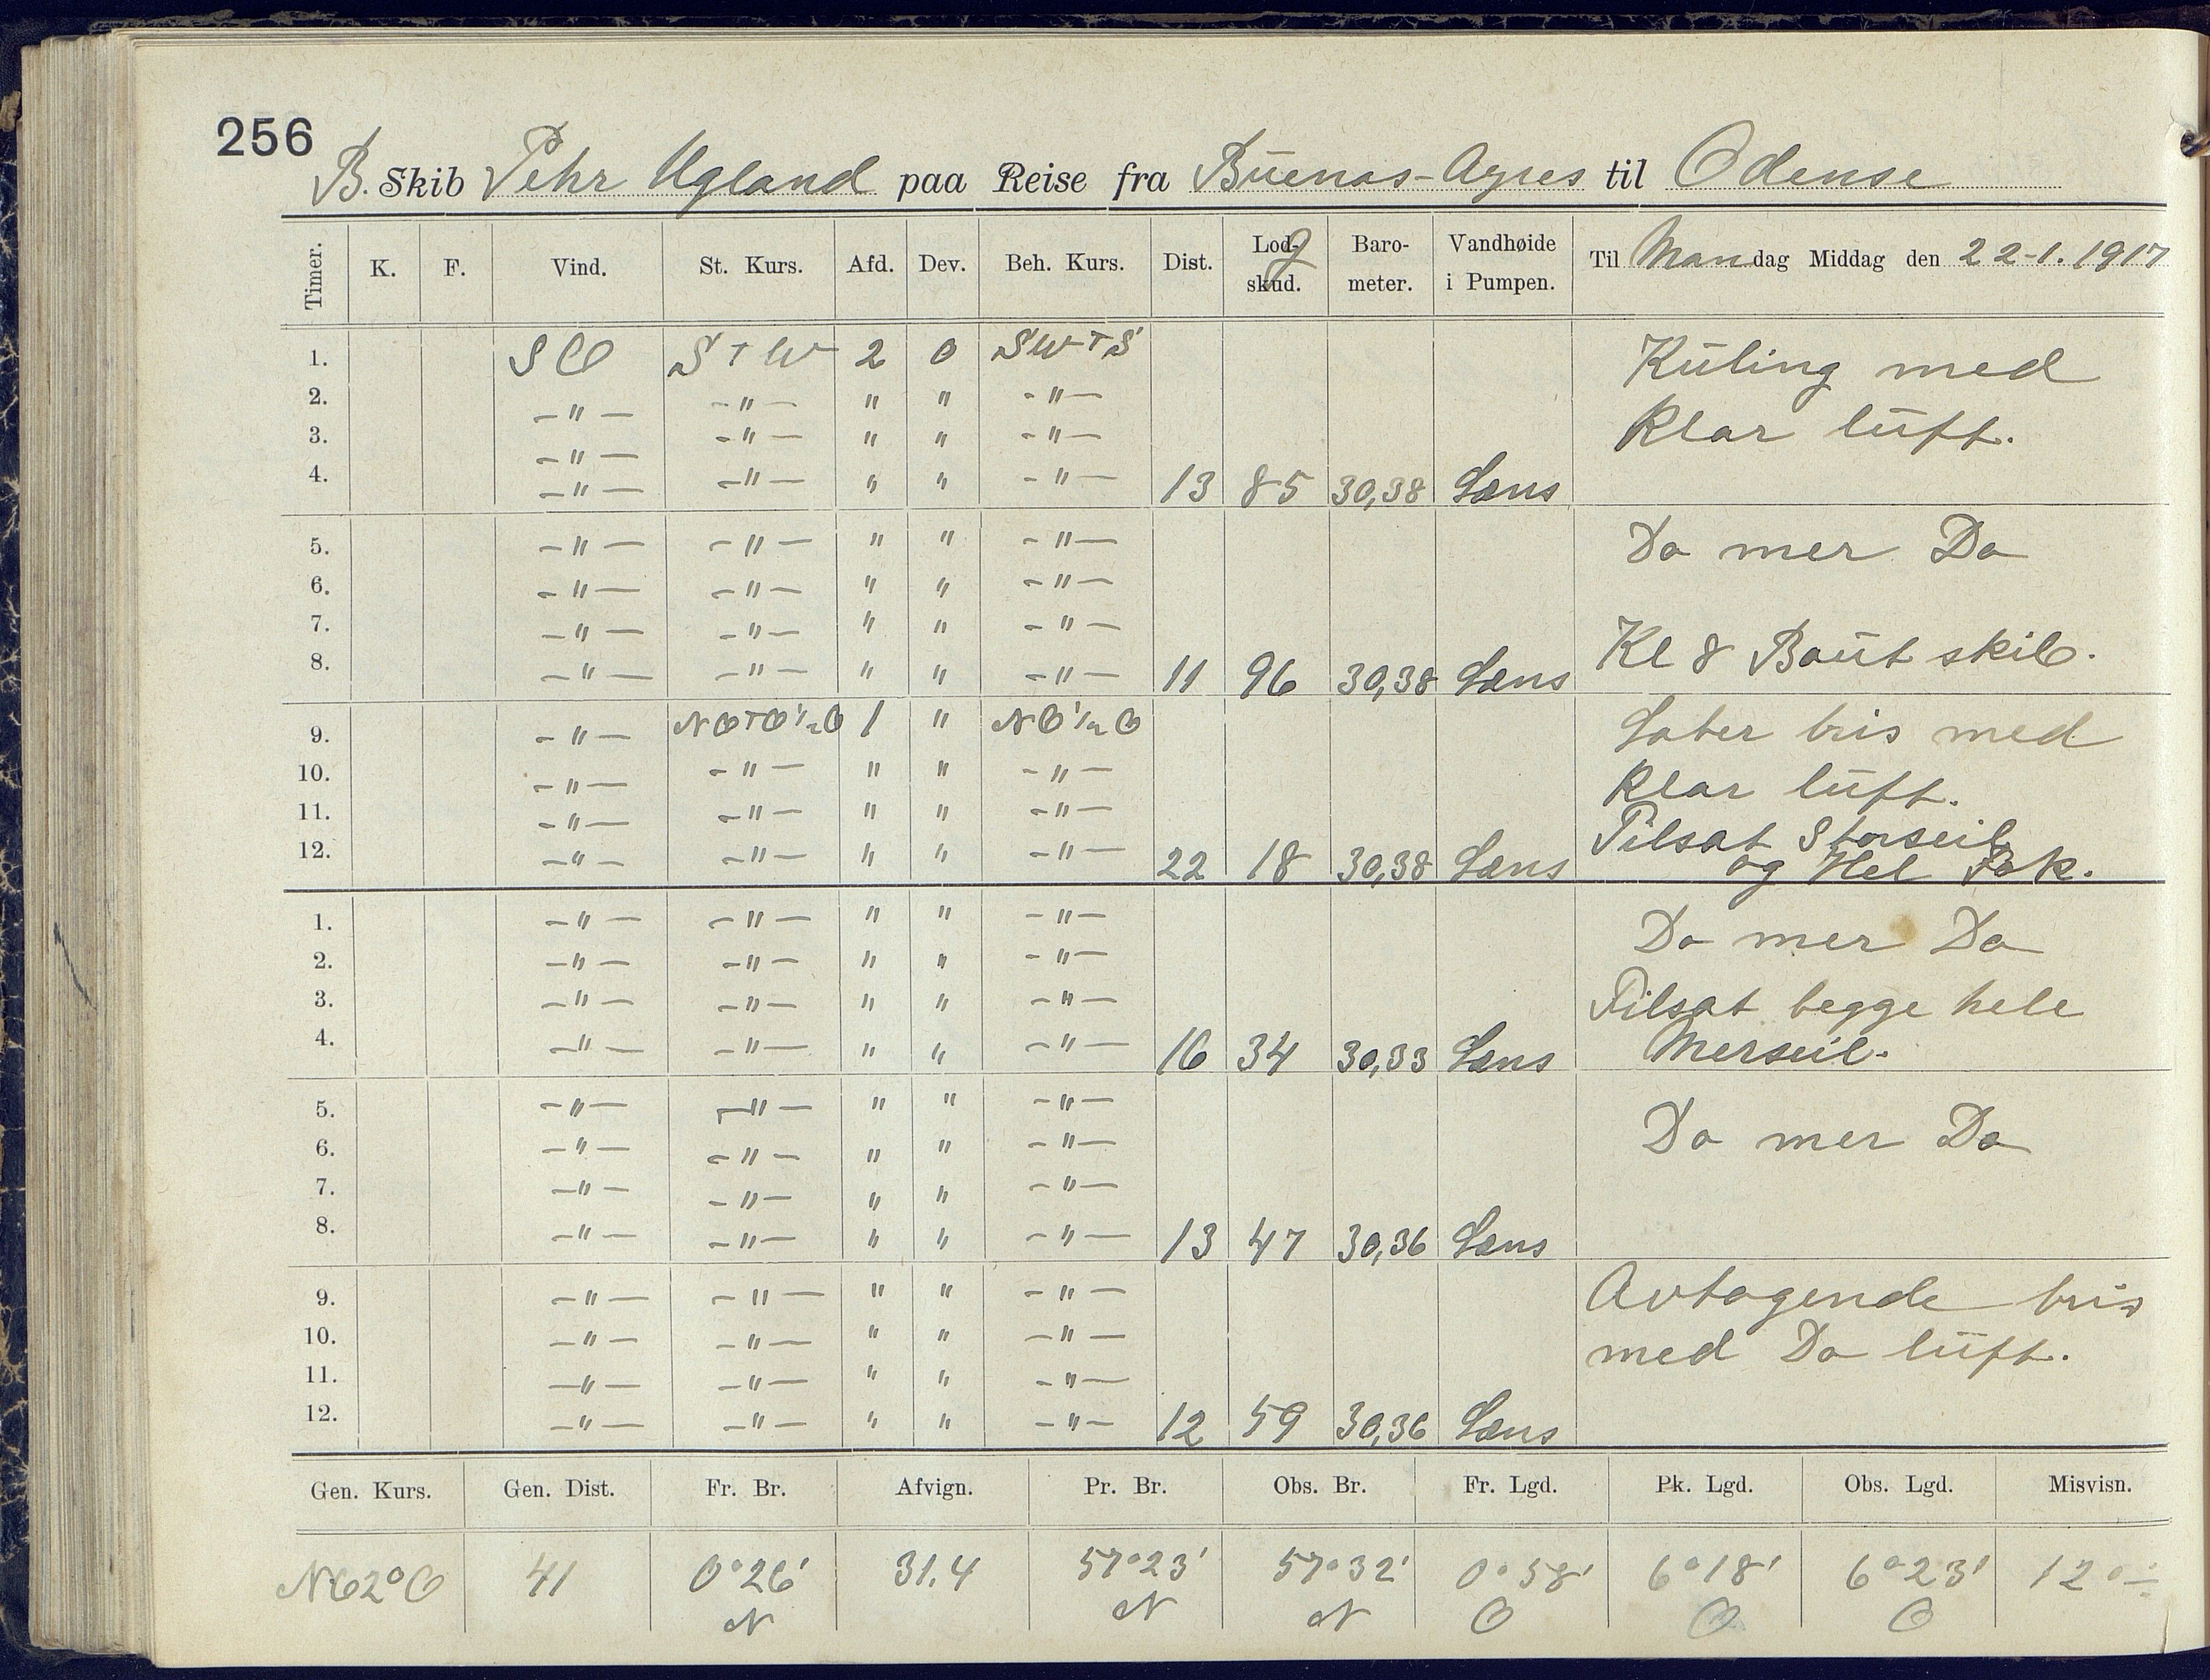 256
B. Skib Pehr Ugland paa Reise fra Buenos-Ayres til Odense
Timer. K. F. Vind. St. Kurs. Afd. Dev. Beh. Kurs. Dist. Lodg skud. Baro- meter. Vandhøide i Pumpen. Til Mandag Middag den 22-1. 1917
1. SO StW 2 0 SWtS Küling med
2. -"- -"- " " -"-
3. -"- -"- " " -"- Klar lüft.
4. -"- -"- " " -"- 13 85 30,38 Læns
5. -"- -"- " " -"- Do mer Do
6. -"- -"- " " -"-
7. -"- -"- " " -"-
8. -"- -"- " " -"- 11 96 30,38 Læns Kl 8 Baut skib.
9. -"- NOtO½O 1 " NO½O Laber bris med
10. -"- -"- " " -"- Klar lüft.
11. -"- -"- " " -"- Tilsat Storseil
12. -"- -"- " " -"- 22 18 30,38 Læns og Hel Fok.
1. -"- -"- " " -"- Do mer Do
2. -"- -"- " " -"-
3. -"- -"- " " -"- Tilsat begge hele
4. -"- -"- " " -"- 16 34 30,33 Læns Merseil.
5. -"- -"- " " -"- Do mer Do
6. -"- -"- " " -"-
7. -"- -"- " " -"-
8. -"- -"- " " -"- 13 47 30,36 Læns
9. -"- -"- " " -"- Avtagende bris
10. -"- -"- " " -"- med Do lüft.
11. -"- -"- " " -"-
12. -"- -"- " " -"- 12 59 30,36 Læns
Gen. Kurs. Gen. Dist. Fr. Br. Afvign. Pr. Br. Obs. Br. Fr. Lgd. Pk. Lgd. Obs. Lgd. Misvisn.
N62°O 41 0°26' 31.4 57°23' 57°32' 0°58' 6°18' 6°23' 12°÷
N N N O O O